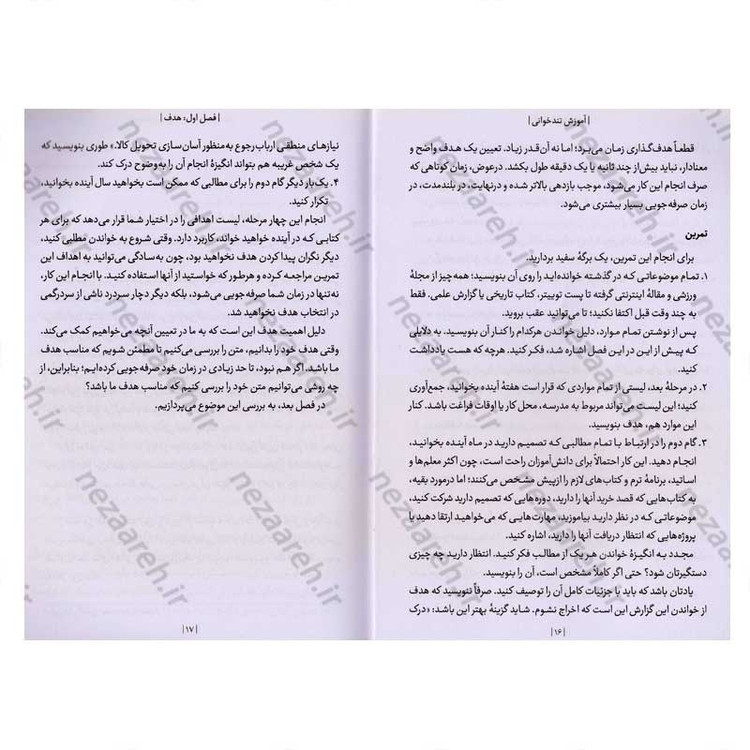 | آموزش تندخوانی |
قطعاً هدف‌گذاری زمان می‌برد؛ اما نه آن‌قدر زیاد. تعیین یک هدف واضح و
معنادار، نباید بیش از چند ثانیه یا یک دقیقه طول بکشد. درعوض، زمان کوتاهی که
صرف انجام این کار می‌شود، موجب بازدهی بالاتر شده و درنهایت، در بلندمدت، در
زمان صرفه‌جویی بسیار بیشتری می‌شود.
تمرین
برای انجام این تمرین، یک برگهٔ سفید بردارید.
۱. تمام موضوعاتی که در گذشته خوانده‌اید را روی آن بنویسید؛ همه‌چیز از مجلهٔ
ورزشی و مقالهٔ اینترنتی گرفته تا پست توییتر، کتاب تاریخی یا گزارش علمی. فقط
به چند وقت قبل اکتفا نکنید؛ تا می‌توانید عقب بروید.
پس از نوشتن تمام موارد، دلیل خواندن هرکدام را کنار آن بنویسید. به دلایلی
که پیش از این در این فصل اشاره شد، فکر کنید. هرچه که هست یادداشت
کنید.
۲. در مرحلهٔ بعد، لیستی از تمام مواردی که قرار است هفتهٔ آینده بخوانید، جمع‌آوری
کنید؛ این لیست می‌تواند مربوط به مدرسه، محل کار یا اوقات فراغت باشد. کنار
این موارد هم، هدف بنویسید.
۳. گام دوم را در ارتباط با تمام مطالبی که تصمیم دارید در ماه آینده بخوانید،
انجام دهید. این کار احتمالاً برای دانش‌آموزان راحت است، چون اکثر معلم‌ها و
اساتید، برنامهٔ ترم و کتاب‌های لازم را ازپیش مشخص می‌کنند؛ اما درمورد بقیه،
به کتاب‌هایی که قصد خرید آنها را دارید، دوره‌هایی که تصمیم دارید شرکت کنید،
موضوعاتی که در نظر دارید بیاموزید، مهارت‌هایی که می‌خواهید ارتقا دهید یا
پروژه‌هایی که انتظار دریافت آنها را دارید، اشاره کنید.
مجدد به انگیزهٔ خواندن هر یک از مطالب فکر کنید. انتظار دارید چه چیزی
دستگیرتان شود؟ حتی اگر کاملاً مشخص است، آن را بنویسید.
یادتان باشد که باید با جزئیات کامل آن را توصیف کنید. صرفاً ننویسید که هدف
از خواندن این گزارش این است که اخراج نشوم. شاید گزینهٔ بهتر این باشد: «درک
| ۱۶ |
| فصل اول: هدف |
نیازهای منطقی ارباب رجوع به‌منظور آسان‌سازی تحویل کالا.» طوری بنویسید که
یک شخص غریبه هم بتواند انگیزهٔ انجام آن را به‌وضوح درک کند.
۴. یک‌بار دیگر گام دوم را برای مطالبی که ممکن است بخواهید سال آینده بخوانید،
تکرار کنید.
انجام این چهار مرحله، لیست اهدافی را در اختیار شما قرار می‌دهد که برای هر
کتابی که در آینده خواهید خواند، کاربرد دارد. وقتی شروع به خواندن مطلبی کنید،
دیگر نگران پیدا کردن هدف نخواهید بود، چون به‌سادگی می‌توانید به اهداف این
تمرین مراجعه کرده و هرطور که خواستید از آنها استفاده کنید. با انجام این کار،
نه‌تنها در زمان شما صرفه‌جویی می‌شود، بلکه دیگر دچار سردرد ناشی از سردرگمی
در انتخاب هدف نخواهید شد.
دلیل اهمیت هدف این است که به ما در تعیین آنچه می‌خواهیم کمک می‌کند.
وقتی هدف خود را بدانیم، متن را بررسی می‌کنیم تا مطمئن شویم که مناسب هدف
ما باشد. اگر هم نبود، تا حد زیادی در زمان خود صرفه‌جویی کرده‌ایم؛ بنابراین، از
چه روشی می‌توانیم متن خود را بررسی کنیم که مناسب هدف ما باشد؟
در فصل بعد، به بررسی این موضوع می‌پردازیم.
| ۱۷ |
nezaareh.ir
nezaareh.ir
nezaareh.ir
nezaareh.ir
nezaareh.ir
nezaareh.ir